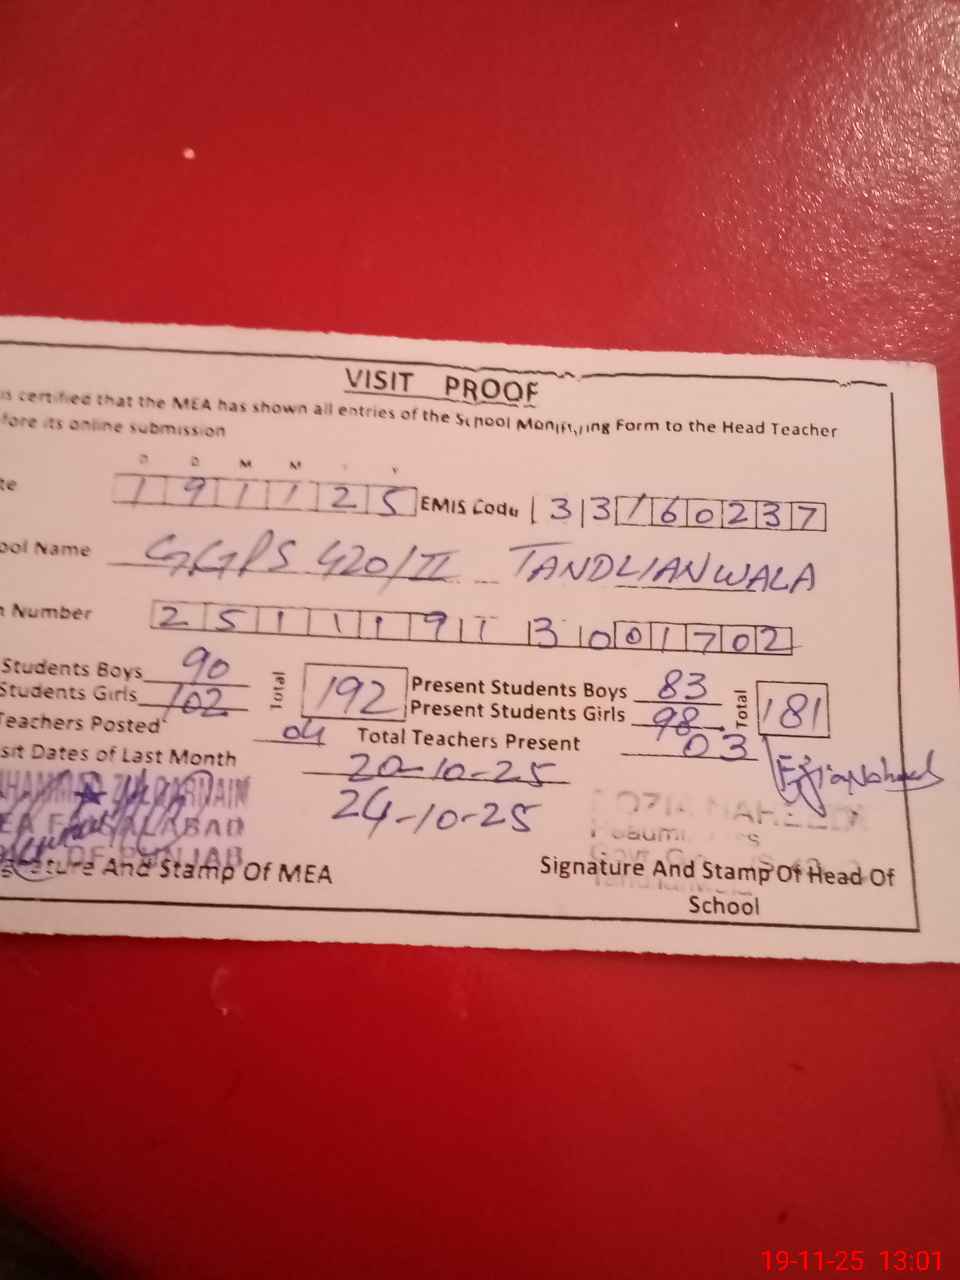 VISIT PROOF
is certified that the MEA has shown all entries of the School Monitoring Form to the Head Teacher
fore its online submission
D D M M Y Y
te 1 9 1 1 2 5 EMIS Code 3 3 1 6 0 2 3 7
ool Name GGPS 420/II TANDLIANWALA
n Number 2 5 1 1 1 9 1 1 3 0 0 1 7 0 2
Students Boys 90 Total 192 Present Students Boys 83 Total 181
Students Girls 102 Present Students Girls 98
Teachers Posted 04 Total Teachers Present 03
sit Dates of Last Month 20-10-25
24-10-25
gnature And Stamp Of MEA
Signature And Stamp Of Head Of
School
19-11-25 13:01